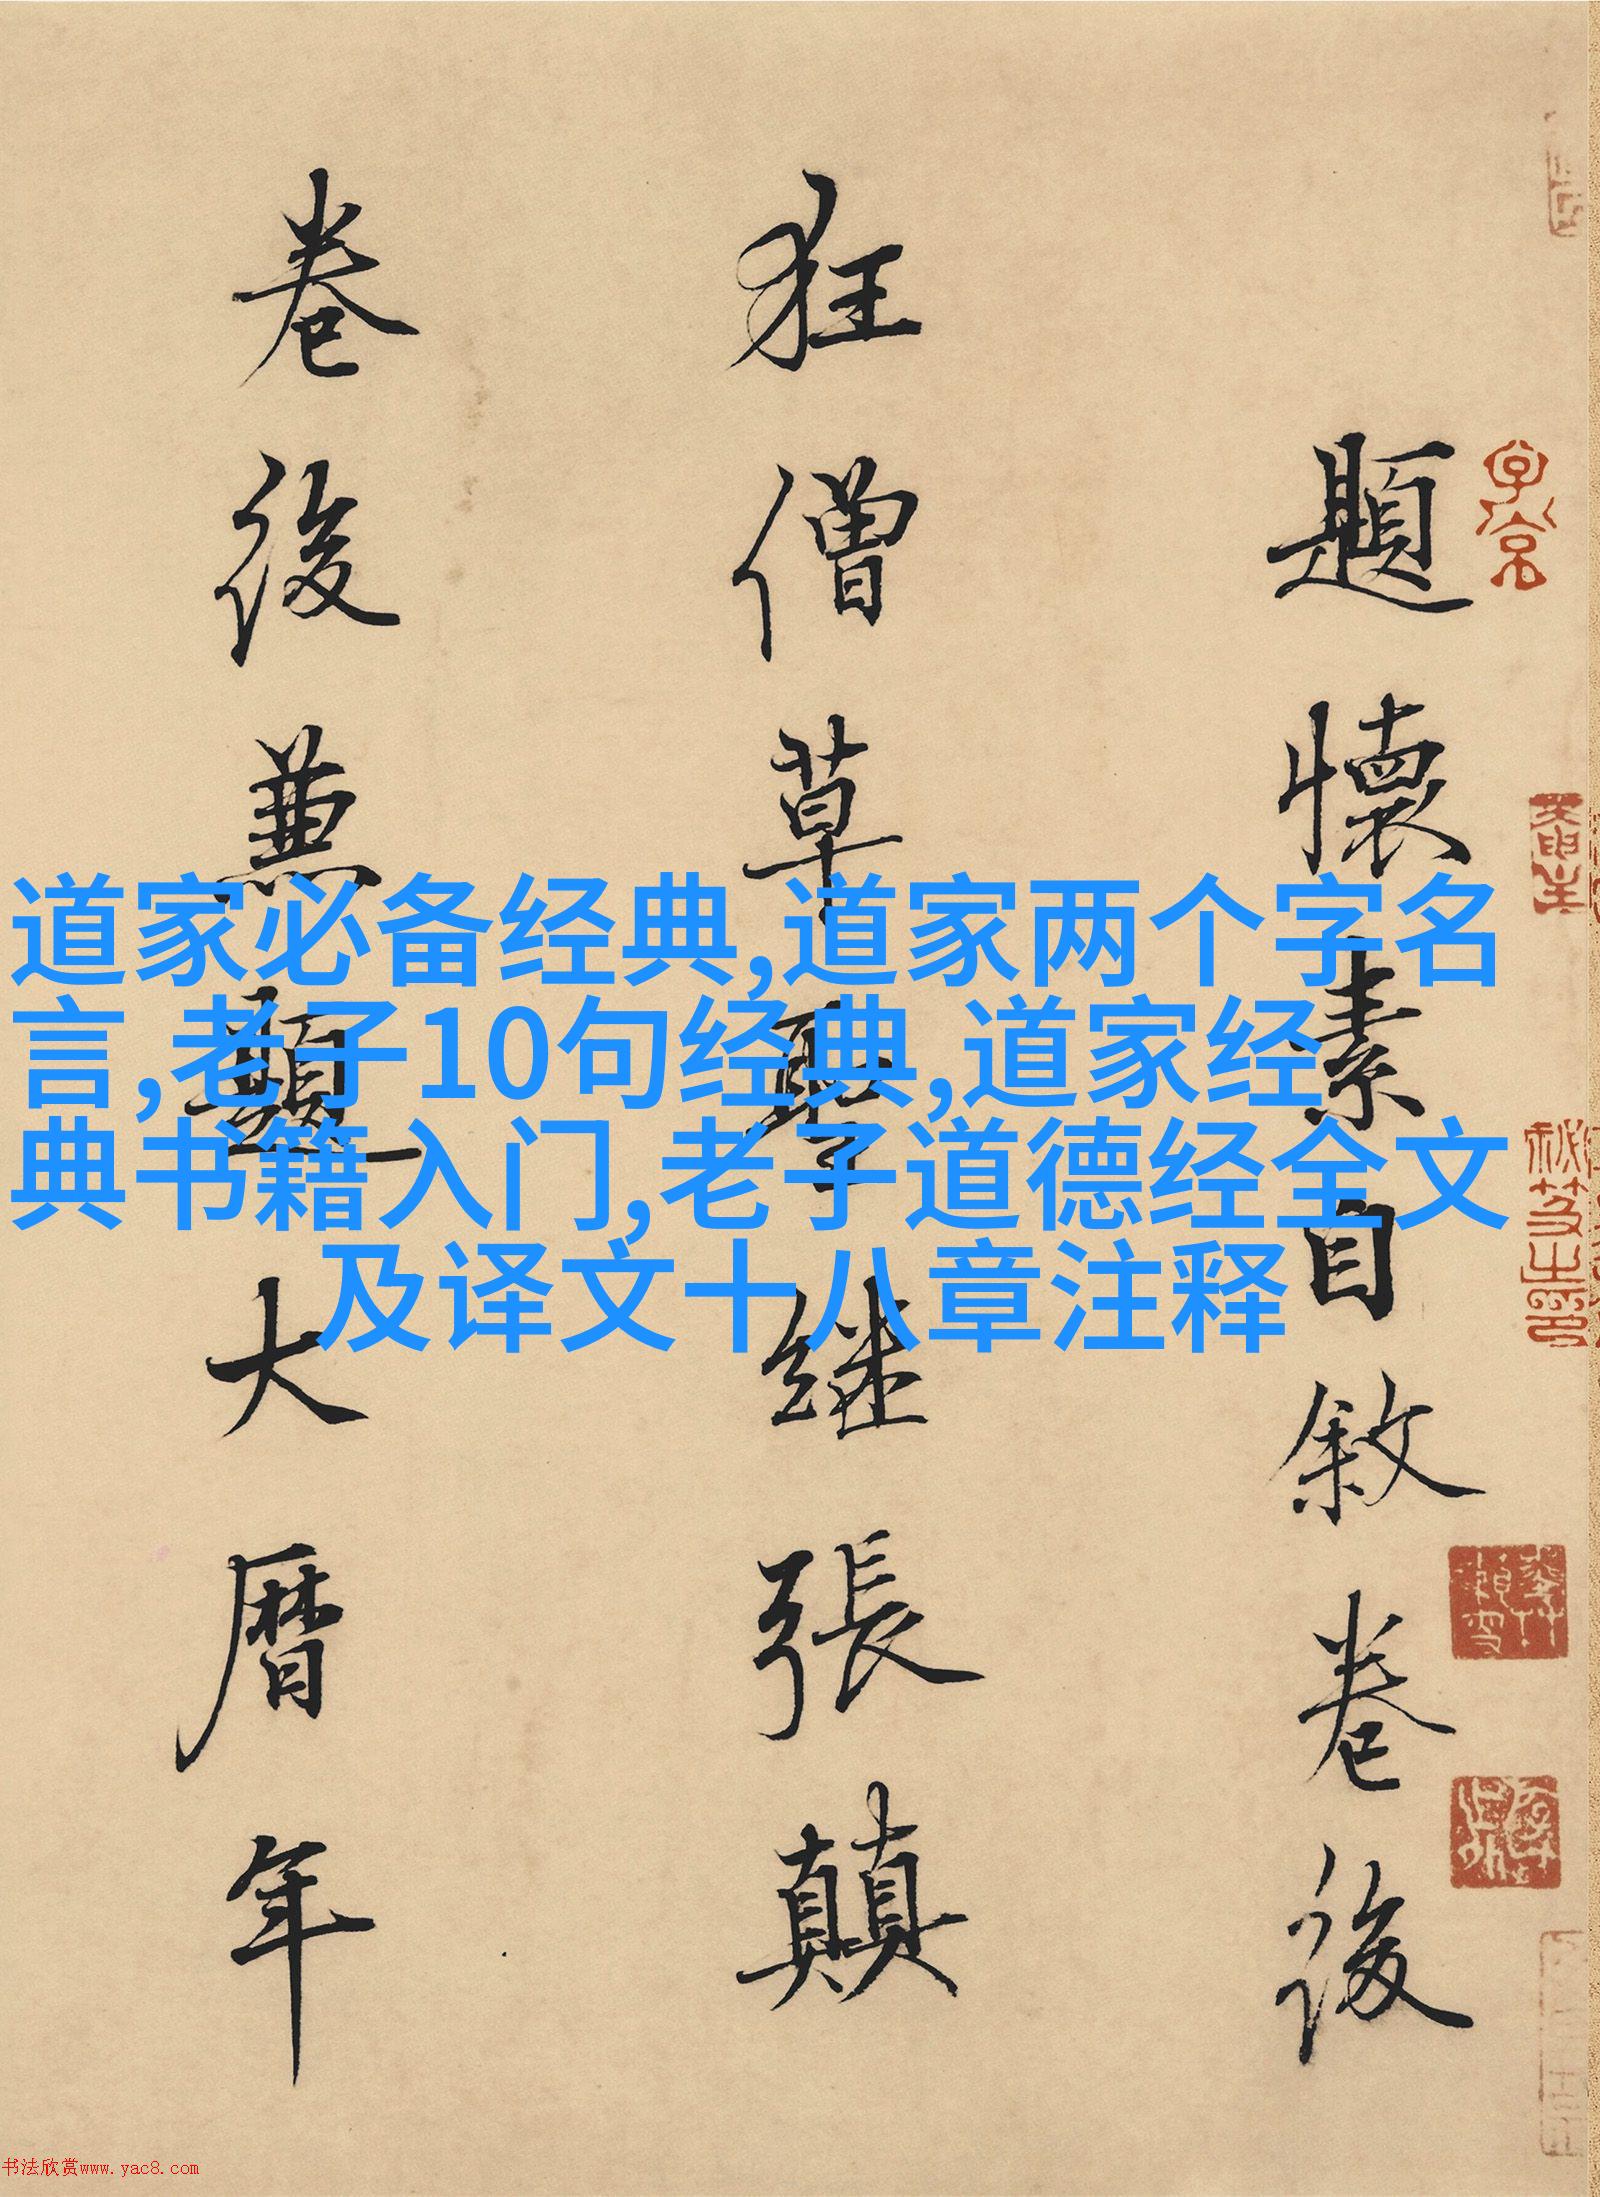 題懷素自敘卷後
狂僧草聖继張顛
卷後兼題大曆年
道家必备经典,道家两个字名
言,老子10句经典,道家经
典书籍入门,老子道德经全文
及译文十八章注释
书法欣赏www.yac8.com